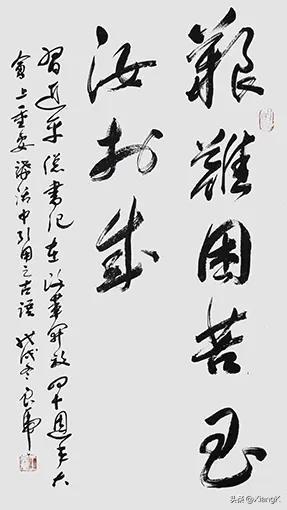 艱難困苦玉
汝於成
習近平總書記在改革開放四十週年大
會上重要講話中引用之古語 戊戌冬
头条 @XiangK